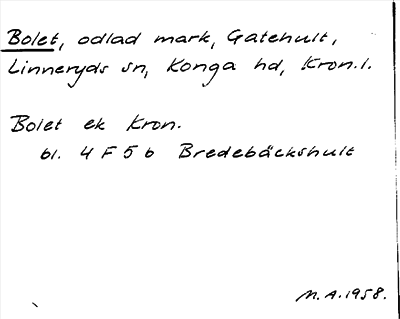 Bolet, odlad mark, Gatehult,
Linneryds sn, Konga hd, Kron.l.
Bolet ek Kron.
bl. 4 F 5 b Bredebäckshult
M.A.1958.